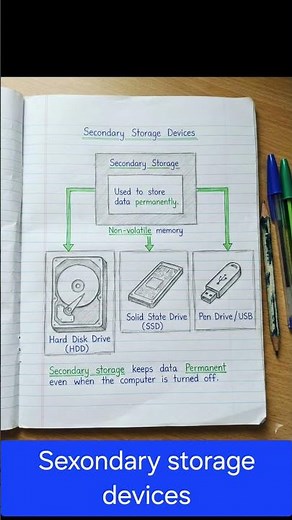 Secondary Storage Devices
Secondary Storage
Used to store
data permanently.
Non-volatile memory
Hard Disk Drive
(HDD)
Solid State Drive
(SSD)
Pen Drive/USB
Secondary storage keeps data Permanent
even when the computer is turned off.
Sexondary storage
devices